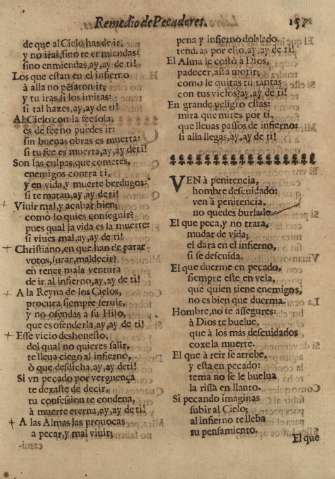 Remedio de Pecadores. 157
de que al Cielo has de ir,
y no irás, sino te enmiendas;
sino enmiendas, ay, ay de ti!
Los que estan en el infierno
à alla no pensaron ir;
y tu iras, si los imitas:
si tal hazes, ay, ay de ti!
Al Cielo con la fee sola,
es de fee no puedes ir;
sin buenas obras es muerta:
si tu fee es muerta, ay, ay de ti!
Son las culpas, que cometes,
enemigos contra ti,
y en vida, y muerte berdugos:
si te matan, ay, ay de ti!
Viuir mal, y acabar bien,
como lo quies conseguir?
pues qual la vida es la muerte:
si viues mal, ay, ay de ti!
Christiano, en que han de parar
votos, jurar, maldecir?
en tener mala ventura
de ir al infierno, ay, ay de ti!
A la Reyna de los Cielos
procura siempre seruir,
y no ofendas à su Hijo,
que es ofenderla, ay, ay de ti!
Esse vicio deshonesto,
del qual no quieres salir,
te lleua ciego al infierno,
ò que desdicha, ay, ay de ti!
Si vn pecado por verguença
te dexaste de decir,
tu confession te condena,
à muerte eterna, ay, ay de ti!
A las Almas las prouocas
à pecar, y mal viuir;
pena y infierno doblado
tendràs por esto, ay, ay de ti!
El Alma le costò à Dios,
padecer, asta morir;
como le quitas tu tantas
con tus vicios, ay, ay de ti!
En grande peligro estàs:
mira que mires por ti,
que lleuas passos de infierno:
si alla llegas, ay, ay de ti!
VEN à penitencia,
hombre descuidado:
ven à penitencia,
no quedes burlado.
El que peca, y no trata,
mudar de vida;
el dara en el infierno,
si se descuida.
El que duerme en pecado,
siempre este en vela,
que quien tiene enemigos,
no es bien que duerma.
Hombre, no te assegures:
à Dios te buelue,
que à los mas descuidados
coxe la muerte.
El que à reir se atrebe,
y esta en pecado:
tema no se le buelua
la risa en llanto.
Si pecando imaginas
subir al Cielo;
al infierno te lleba
tu pensamiento.
El que